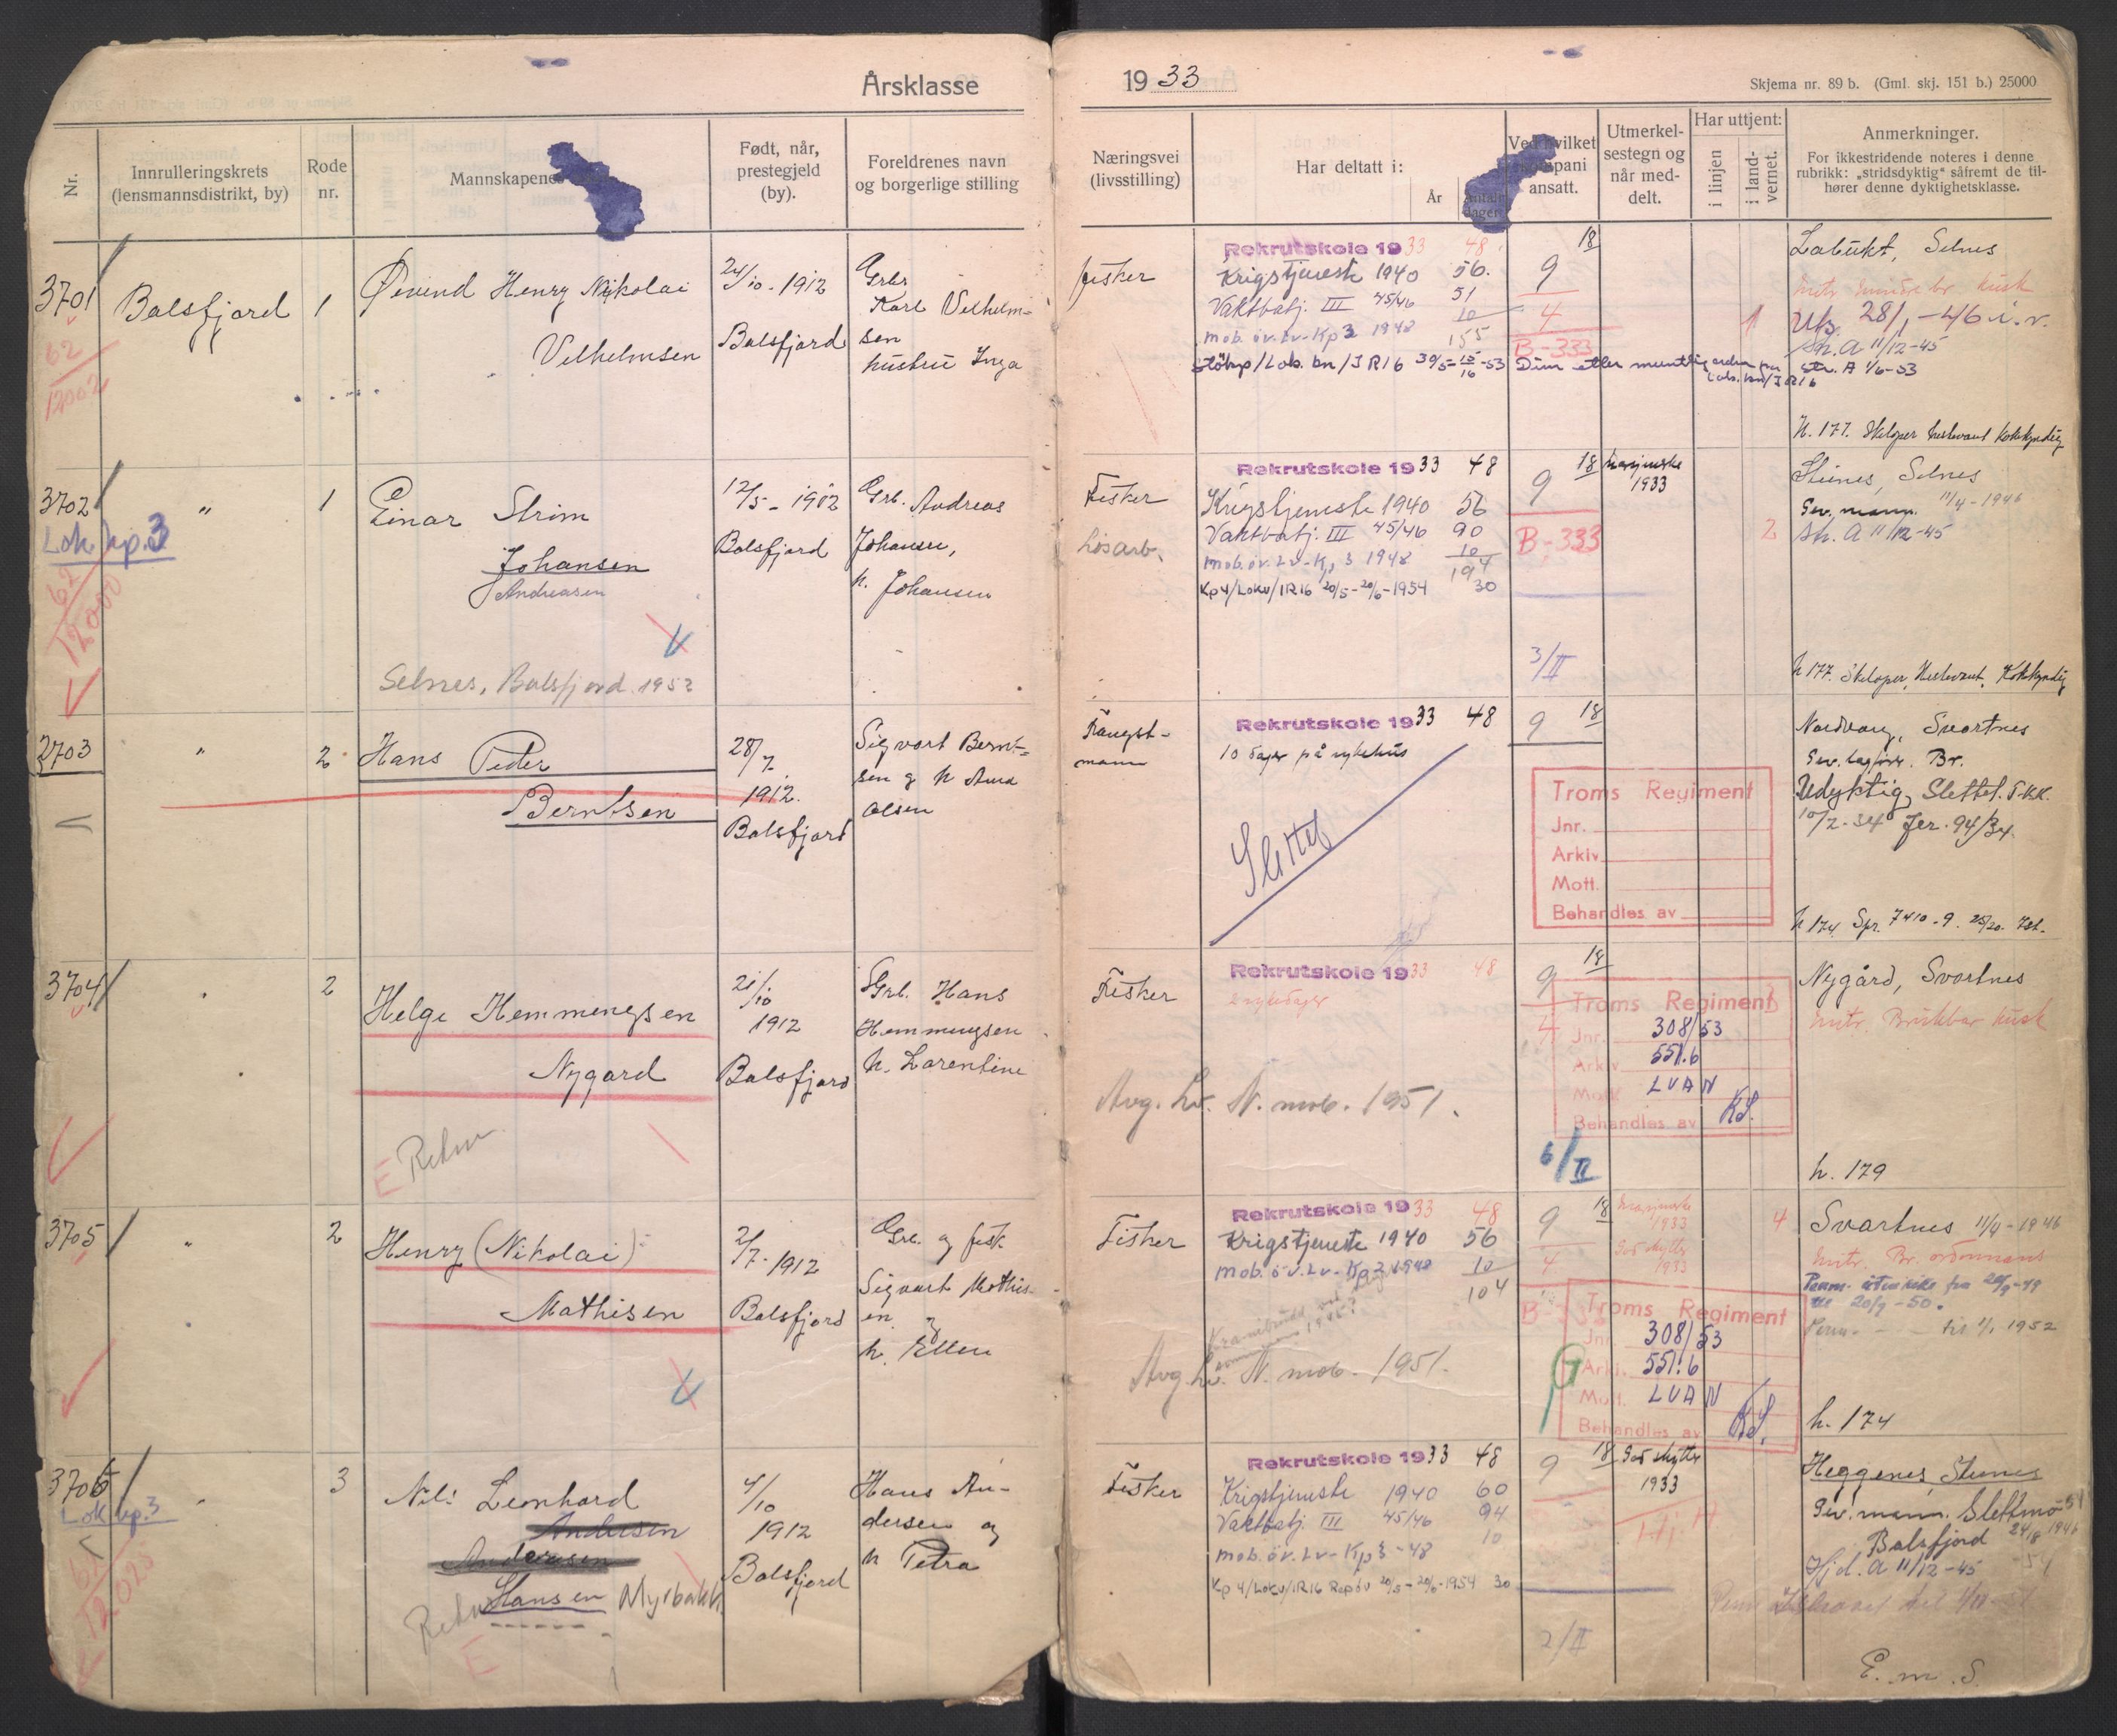 Årsklasse
1933
Skjema nr. 89 b. (Gml. skj. 151 b.) 25000
Nr.
Innrulleringskrets
(lensmannsdistrikt, by)
Rode
nr.
Mannskapenes
Født, når,
prestegjeld
(by).
Foreldrenes navn
og borgerlige stilling
Næringsvei
(livsstilling)
Har deltatt i:
År
Antall
dager
Ved hvilket
kompani
ansatt.
Utmerkel-
sestegn og
når med-
delt.
Har uttjent:
i linjen
i land-
vernet.
Anmerkninger.
For ikkestridende noteres i denne
rubrikk: „stridsdyktig“ såfremt de til-
hører denne dyktighetsklasse.
3701
62
12002
Balsfjord
1
Øivind Henry Nikolai
Vilhelmsen
24/10 - 1912
Balsfjord
Grbr.
Karl Vilhelm-
sen
hustru Inga
Fisker
Rekrutskole 1933 48
Krigstjeneste 1940 56.
Vaktbatj. III 45/46 51
10
mob. öv. Lv - Kp 3 1948 155
9
18
4
B-333
1
Labukt, Selnes
Utg. 28/1 - 46 i. v.
Sk. A 11/12-45
Str. A 1/6-53
h. 177. Skiløper hestevant kokekyndig
3702
Lok. kp. 3
62
12000
"
1
Einar Strim
Johansen
Andreasen
Selnes, Balsfjord 1952
12/5 - 1912
Balsfjord
Grb. Andreas
Johansen,
h. Johansen
Fisker
Løsarb.
Rekrutskole 1933 48
Krigstjeneste 1940 56
Vaktbatj. III 45/46 90
mob. öv. Lv - Kp 3 1948 10
194
Kp 4/Lokv/IR16 20/5 - 20/6 - 1954 30
9
18
B-333
3/II
1933
2
Stines, Selnes
Gev. mann. 11/4 - 1946
Sk. A 11/12-45
h 177. Skiløper, Hestevant, Kokekyndig
2703
"
2
Hans Peder
Berntsen
28/7
1912.
Balsfjord
Sigvart Bernt-
sen og h Anna
Olsen
Fangst-
mann
Rekrutskole 1933 48
10 dager på sykehus
Slettet
9
18
Troms Regiment
Jnr.
Arkiv
Mott.
Behandles av
Nordberg, Svartnes
Gev. lagför. Br.
Udyktig, Slettet. T.KK.
10/2-34 Jcr. 94/34.
h 174
3704
2
Helge Hemmingsen
Nygård
E
21/10
1912
Balsfjord
Grb. Hans
Hemmingsen
h. Larentine
Fisker
Rekrutskole 1933 48
Avg. Lv. N. mob. 1951.
9
18
4
6/II
Troms Regiment
Jnr. 308/53
Arkiv 551.6
Mott. LVAN
Behandles av KS.
Nygård, Svartnes
mitr. Brukbar kusk
h. 179
3705
"
2
Henry (Nikolai)
Mathisen
2/7 - 1912
Balsfjord
Grb. og fisk
Sigvart Mathis-
en og
h. Ellen
Fisker
Rekrutskole 1933 48
Krigstjeneste 1940 56
mob. öv. Lv - Kp 2 1948 10
104
Avg. Lv. N. mob. 1951.
9
18
4
1933
God skytter
1933
4
Troms Regiment
Jnr. 308/53
Arkiv 551.6
Mott. LVAN
Behandles av KS.
Svartnes 11/4 - 1946
mitr. Br. ordonnans
Perm. utenriks fra 20/9-49
til 20/9-50.
Perm. - - til 1/1 1952
h. 174
3706
Lok kp. 3
61
12025
3
Nils Leonhard
Andersen
Andersen
Hansen Myrbakk.
E
4/10
1912
Balsfjord
Hans An-
dersen og
h Petra
Fisker
Rekrutskole 1933 48
Krigstjeneste 1940 60
Vaktbatj. III 45/46 94
mob. öv. Lv - Kp 3 - 48 10
Kp 4/Lokv/IR16 Rep öv 20/5 - 20/6 - 1954 30
9
18
2/II
God skytter
1933
Heggenes, Stines
Gev. mann. Slettmo
Balsfjord 24/8 1946
Hjd. A 11/12-45
E. m. S.